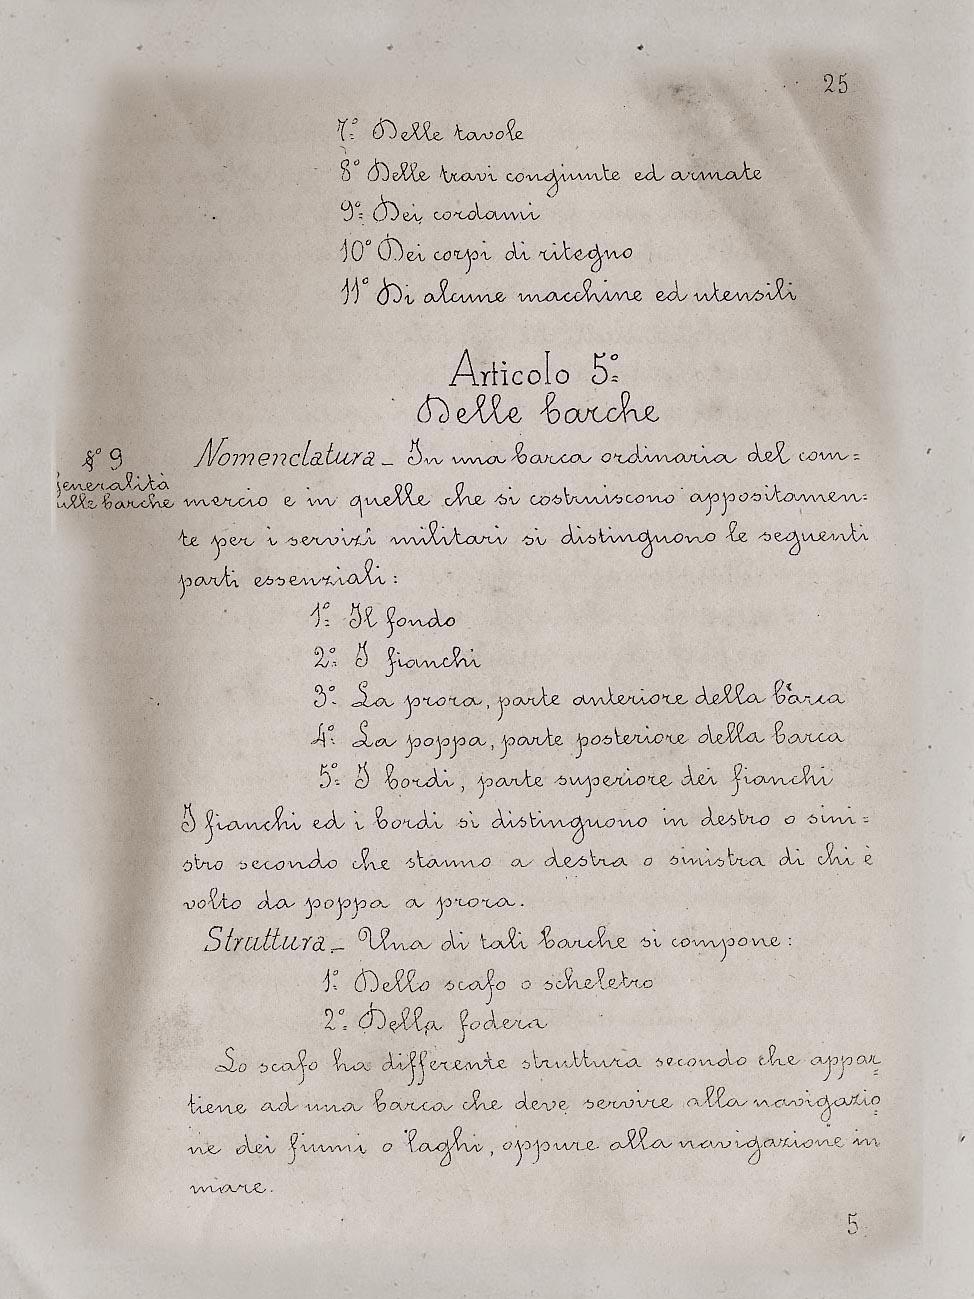 25
7º Delle tavole
8º Delle travi congiunte ed armate
9º Dei cordami
10º Dei corpi di ritegno
11º Di alcune macchine ed utensili
Articolo 5º
Delle barche
§º 9
Generalità
sulle barche
Nomenclatura – In una barca ordinaria del com=
mercio e in quelle che si costruiscono appositamen=
te per i servizî militari si distinguono le seguenti
parti essenziali:
1º Il fondo
2º I fianchi
3º La prora, parte anteriore della barca
4º La poppa, parte posteriore della barca
5º I bordi, parte superiore dei fianchi
I fianchi ed i bordi si distinguono in destro o sini=
stro secondo che stanno a destra o sinistra di chi è
volto da poppa a prora.
Struttura – Una di tali barche si compone:
1º Dello scafo o scheletro
2º Della fodera
Lo scafo ha differente struttura secondo che appar=
tiene ad una barca che deve servire alla navigazio=
ne dei fiumi o laghi, oppure alla navigazione in
mare.
5